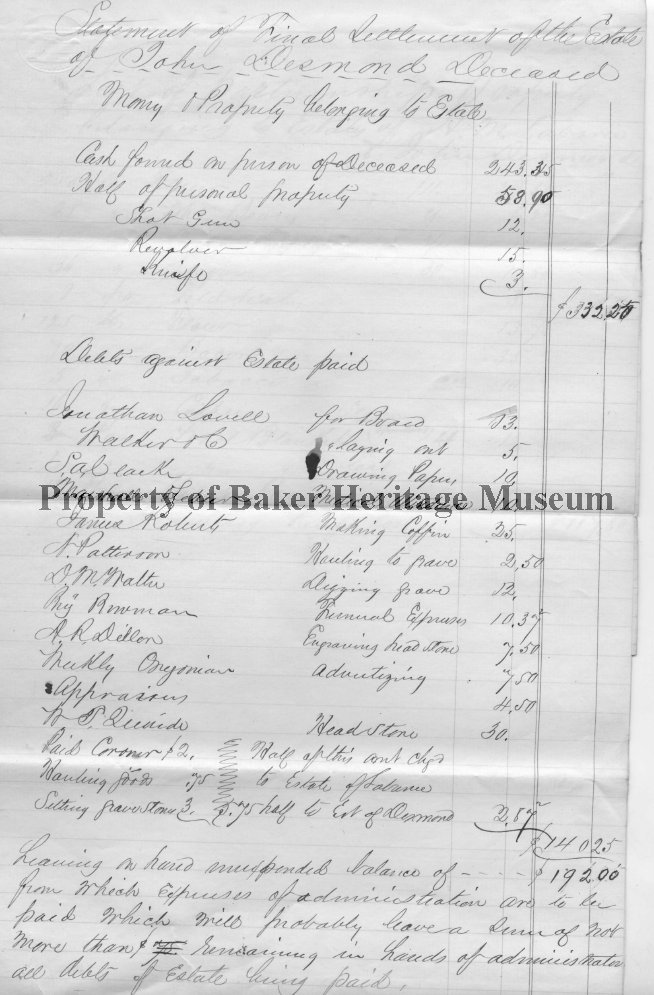 Statement of Final Settlement of the Estate
of John Desmond Deceased
Money & Property belonging to Estate
Cash found on person of Deceased 243.35
Half of personal property 58.90
Shot Gun 12.
Revolver 15.
Knife 3.
$332.25
Debts against Estate paid
Jonathan Lovell for Board 13.
Walker & C " Laying out 5.
Drawing Papers 10
Property of Baker Heritage Museum
James Roberts Making Coffin 35.
N. Patterson Hauling to grave 2,50
D. M. Walter Digging grave 12.
Bowman Funeral Expenses 10.37
A. R. Dillon Engraving head stone 7.50
Weekly Oregonian Advertizing 7,50
Appraisers 4,50
Head Stone 30.
Paid Coroner $2. Half of this amt chgd
Hauling goods .75 to Estate of
Setting grave stones 3. 5.75 half to Est of Desmond 2,87
$140.25
Leaving on hand unexpended balance of ---- $192.00
from which Expenses of administration are to be
paid which will probably leave a sum of not
more than $ remaining in hands of administrator
all debts of Estate being paid.